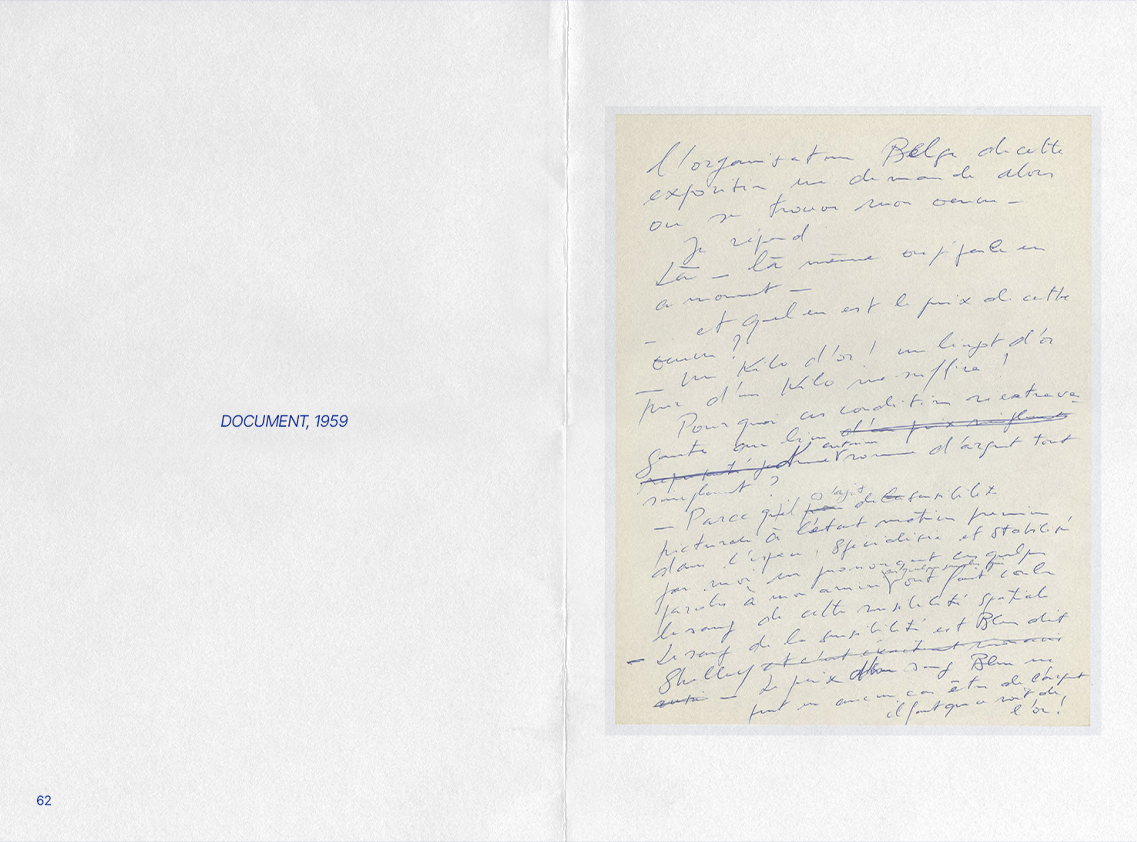 DOCUMENT, 1959
62
l'organisation Belge de cette
exposition me demande alors
où se trouve mon œuvre –
Je répond
Là – là même où je parle en
ce moment –
– et quel en est le prix de cette
œuvre ?
– Un Kilo d'or ! un lingot d'or
pur d'un Kilo me suffira !
Pourquoi ces conditions extrava-
gantes au lieu d'un prix simplement
représenté par une somme d'argent tout
simplement ?
– Parce qu'il s'agit de la sensibilité
picturale à l'état matière première
dans l'espace, spécialisée et stabilisé
par moi en prononçant ces quelques
paroles à mon arrivée ont fait couler
le sang de cette sensibilité spatiale
– Le sang de la sensibilité est Bleu dit
Shelley et c'est exactement mon avis
aussi – Le prix du sang Bleu ne
peut en aucun cas être de l'argent
il faut que ce soit de
l'or !